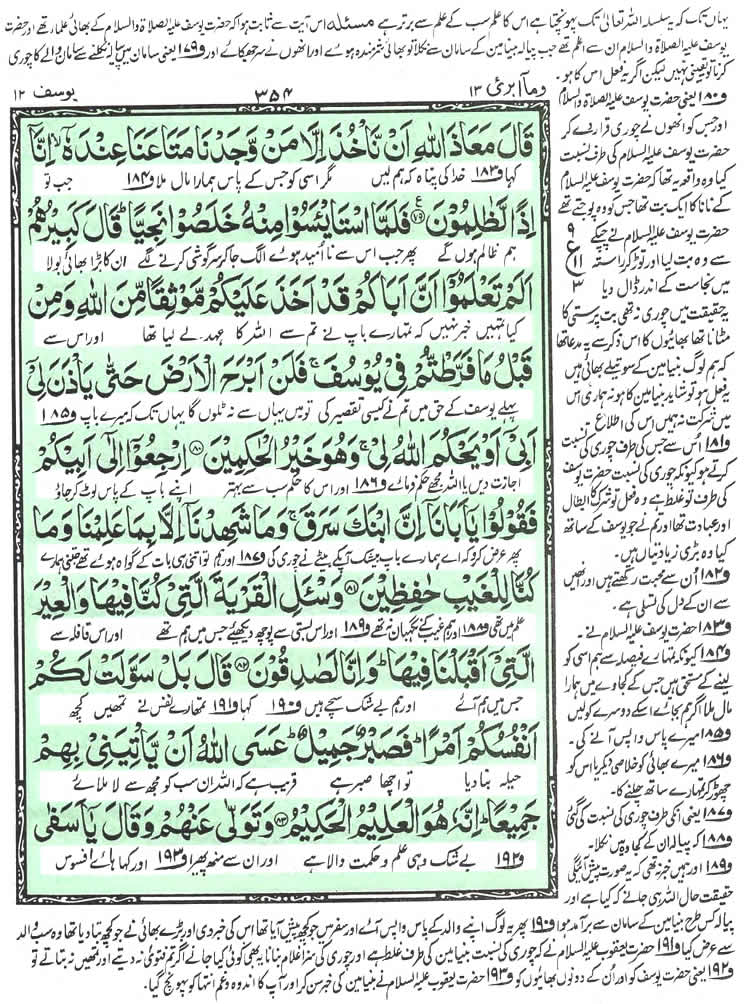 یہاں تک کہ یہ سلسلہ اللہ تعالیٰ تک پہونچتا ہے اس کا علم سب کے علم سے برتر ہے مسئلہ اس آیت سے ثابت ہوا کہ حضرت یوسف علیہ الصلاۃ والسلام کے بھائی علماء تھے اور حضرت
یوسف علیہ الصلاۃ والسلام ان سے اعلم تھے جب پیالہ بنیامین کے سامان سے نکلا تو بھائی شرمندہ ہوئے اور انھوں نے سر جھکائے اور و۱۷۹ یعنی سامان میں پیالہ نکلنے سے سامان والے کا چوری
کرنا تو یقینی نہیں لیکن اگر یہ فعل اس کا ہو۔
وما ابرئ ۱۳
۳۵۴
یوسف ۱۲
قَالَ مَعَاذَ اللهِ اَنْ نَّاْخُذَ اِلَّا مَنْ وَّجَدْنَا مَتَاعَنَا عِنْدَهٗۤ ۙ اِنَّاۤ
کہا و۱۸۳ خدا کی پناہ کہ ہم لیں مگر اسی کو جس کے پاس ہمارا مال ملا و۱۸۴ جب تو
اِذًا لَّظٰلِمُوْنَ ۷۹ فَلَمَّا اسْتَایْـَٔسُوْا مِنْهُ خَلَصُوْا نَجِیًّا ؕ قَالَ كَبِیْرُهُمْ
ہم ظالم ہوں گے پھر جب اس سے نا امید ہوئے الگ جا کر سرگوشی کرنے لگے ان کا بڑا بھائی بولا
اَلَمْ تَعْلَمُوْۤا اَنَّ اَبَاكُمْ قَدْ اَخَذَ عَلَیْكُمْ مَّوْثِقًا مِّنَ اللهِ وَ مِنْ
کیا تمہیں خبر نہیں کہ تمہارے باپ نے تم سے اللہ کا عہد لے لیا تھا اور اس سے
قَبْلُ مَا فَرَّطْتُّمْ فِیْ یُوْسُفَ ۚ فَلَنْ اَبْرَحَ الْاَرْضَ حَتّٰی یَاْذَنَ لِیْۤ
پہلے یوسف کے حق میں تم نے کیسی تقصیر کی تو میں یہاں سے نہ ٹلوں گا یہاں تک کہ میرے باپ و۱۸۵
اَبِیْۤ اَوْ یَحْكُمَ اللهُ لِیْ ۚ وَ هُوَ خَیْرُ الْحٰكِمِیْنَ ۸۰ اِرْجِعُوْۤا اِلٰۤی اَبِیْكُمْ
اجازت دیں یا اللہ مجھے حکم فرمائے و۱۸۶ اور اس کا حکم سب سے بہتر اپنے باپ کے پاس لوٹ کر جاؤ
فَقُوْلُوْا یٰۤاَبَانَاۤ اِنَّ ابْنَكَ سَرَقَ ۚ وَ مَا شَهِدْنَاۤ اِلَّا بِمَا عَلِمْنَا وَ مَا
پھر عرض کرو کہ اے ہمارے باپ بیشک آپ کے بیٹے نے چوری کی و۱۸۷ اور ہم تو اتنی ہی بات کے گواہ ہوئے تھے جتنی ہمارے
كُنَّا لِلْغَیْبِ حٰفِظِیْنَ ۸۱ وَ سْـَٔلِ الْقَرْیَةَ الَّتِیْ كُنَّا فِیْهَا وَ الْعِیْرَ
علم میں تھی و۱۸۸ اور ہم غیب کے نگہبان نہ تھے و۱۸۹ اور اس بستی سے پوچھ دیکھئے جس میں ہم تھے اور اس قافلے سے
الَّتِیْۤ اَقْبَلْنَا فِیْهَا ؕ وَ اِنَّا لَصٰدِقُوْنَ ۸۲ قَالَ بَلْ سَوَّلَتْ لَكُمْ
جس میں ہم آئے اور ہم بے شک سچے ہیں و۱۹۰ کہا و۱۹۱ تمہارے نفس نے تمہیں کچھ
اَنْفُسُكُمْ اَمْرًا ؕ فَصَبْرٌ جَمِیْلٌ ؕ عَسَی اللهُ اَنْ یَّاْتِیَنِیْ بِهِمْ
حیلہ بنا دیا تو اچھا صبر ہے قریب ہے کہ اللہ ان سب کو مجھ سے لا ملائے
جَمِیْعًا ؕ اِنَّهٗ هُوَ الْعَلِیْمُ الْحَكِیْمُ ۸۳ وَ تَوَلّٰی عَنْهُمْ وَ قَالَ یٰۤاَسَفٰی
و۱۹۲ بے شک وہی علم و حکمت والا ہے اور ان سے منھ پھیرا و۱۹۳ اور کہا ہائے افسوس
و۱۸۰ یعنی حضرت یوسف علیہ الصلاۃ والسلام
اور جس کو انھوں نے چوری قرار دے کر
حضرت یوسف علیہ السلام کی طرف نسبت
کیا وہ واقعہ یہ تھا کہ حضرت یوسف علیہ السلام
کے نانا کا ایک بت تھا جس کو وہ پوجتے تھے
حضرت یوسف علیہ السلام نے چپکے
سے وہ بت لیا اور توڑ کر راستہ
میں نجاست کے اندر ڈال دیا
یہ حقیقت میں چوری نہ تھی بت پرستی کا
مٹانا تھا بھائیوں کا اس ذکر سے یہ مدعا تھا
کہ ہم لوگ بنیامین کے سوتیلے بھائی ہیں
یہ فعل ہو تو شاید بنیامین کا ہو نہ ہماری اس
میں شرکت نہ ہمیں اس کی اطلاع
و۱۸۱ اس سے جس کی طرف چوری کی نسبت
کرتے ہو کیونکہ چوری کی نسبت حضرت یوسف
کی طرف تو غلط ہے وہ فعل تو شرک کا ابطال
اور عبادت تھا اور تم نے جو یوسف کے ساتھ
کیا وہ بڑی زیادتیاں ہیں۔
و۱۸۲ ان سے محبت رکھتے ہیں اور انھیں
سے ان کے دل کی تسلی ہے۔
و۱۸۳ حضرت یوسف علیہ السلام نے۔
و۱۸۴ کیونکہ تمہارے فیصلہ سے ہم اسی کو
لینے کے مستحق ہیں جس کے کجاوے میں ہمارا
مال ملا اگر ہم بجائے اسکے دوسرے کو لیں
و۱۸۵ میرے پاس واپس آنے کی۔
و۱۸۶ میرے بھائی کو خلاصی دیکر یا اس کو
چھوڑ کر تمہارے ساتھ چلنے کا۔
و۱۸۷ یعنی انکی طرف چوری کی نسبت کی گئی
و۱۸۸ کہ پیالہ ان کے کجاوہ میں نکلا۔
و۱۸۹ اور ہمیں خبر نہ تھی کہ یہ صورت پیش آئیگی
حقیقت حال اللہ ہی جانے کہ کیا ہے اور
پیالہ کس طرح بنیامین کے سامان سے برآمد ہوا و۱۹۰ پھر یہ لوگ اپنے والد کے پاس واپس آئے اور سفر میں جو کچھ پیش آیا تھا اس کی خبر دی اور بڑے بھائی نے جو کچھ بتا دیا تھا وہ سب والد
سے عرض کیا و۱۹۱ حضرت یعقوب علیہ السلام نے کہ چوری کی نسبت بنیامین کی طرف غلط ہے اور چوری کی سزا غلام بنانا یہ بھی کوئی کیا جانے اگر تم فتویٰ نہ دیتے اور تمھیں نہ بتاتے تو
و۱۹۲ یعنی حضرت یوسف کو اور ان کے دونوں بھائیوں کو و۱۹۳ حضرت یعقوب علیہ السلام نے بنیامین کی خبر سن کر اور آپ کا اندوہ و غم انتہا کو پہونچ گیا۔